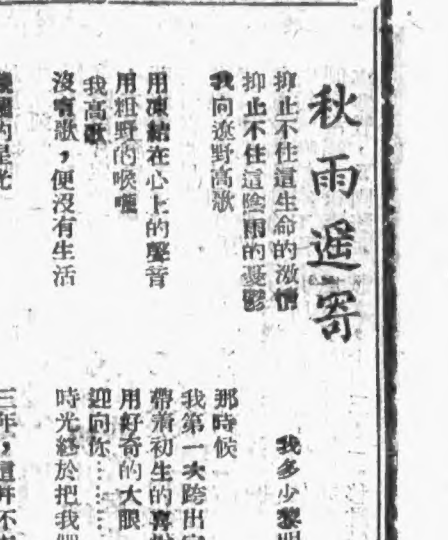 秋雨遥寄
抑止不住這生命的激情
抑止不住這陰雨的憂鬱
我向遼野高歌
用凍結在心上的聲音
用粗野的喉嚨
我高歌
沒有歌，便沒有生活
的星光
我多少黎明
那時候
我第一次跨出
帶着初生的喜
用好奇的大眼
迎向你……
時光終於把我們
三年，這并不